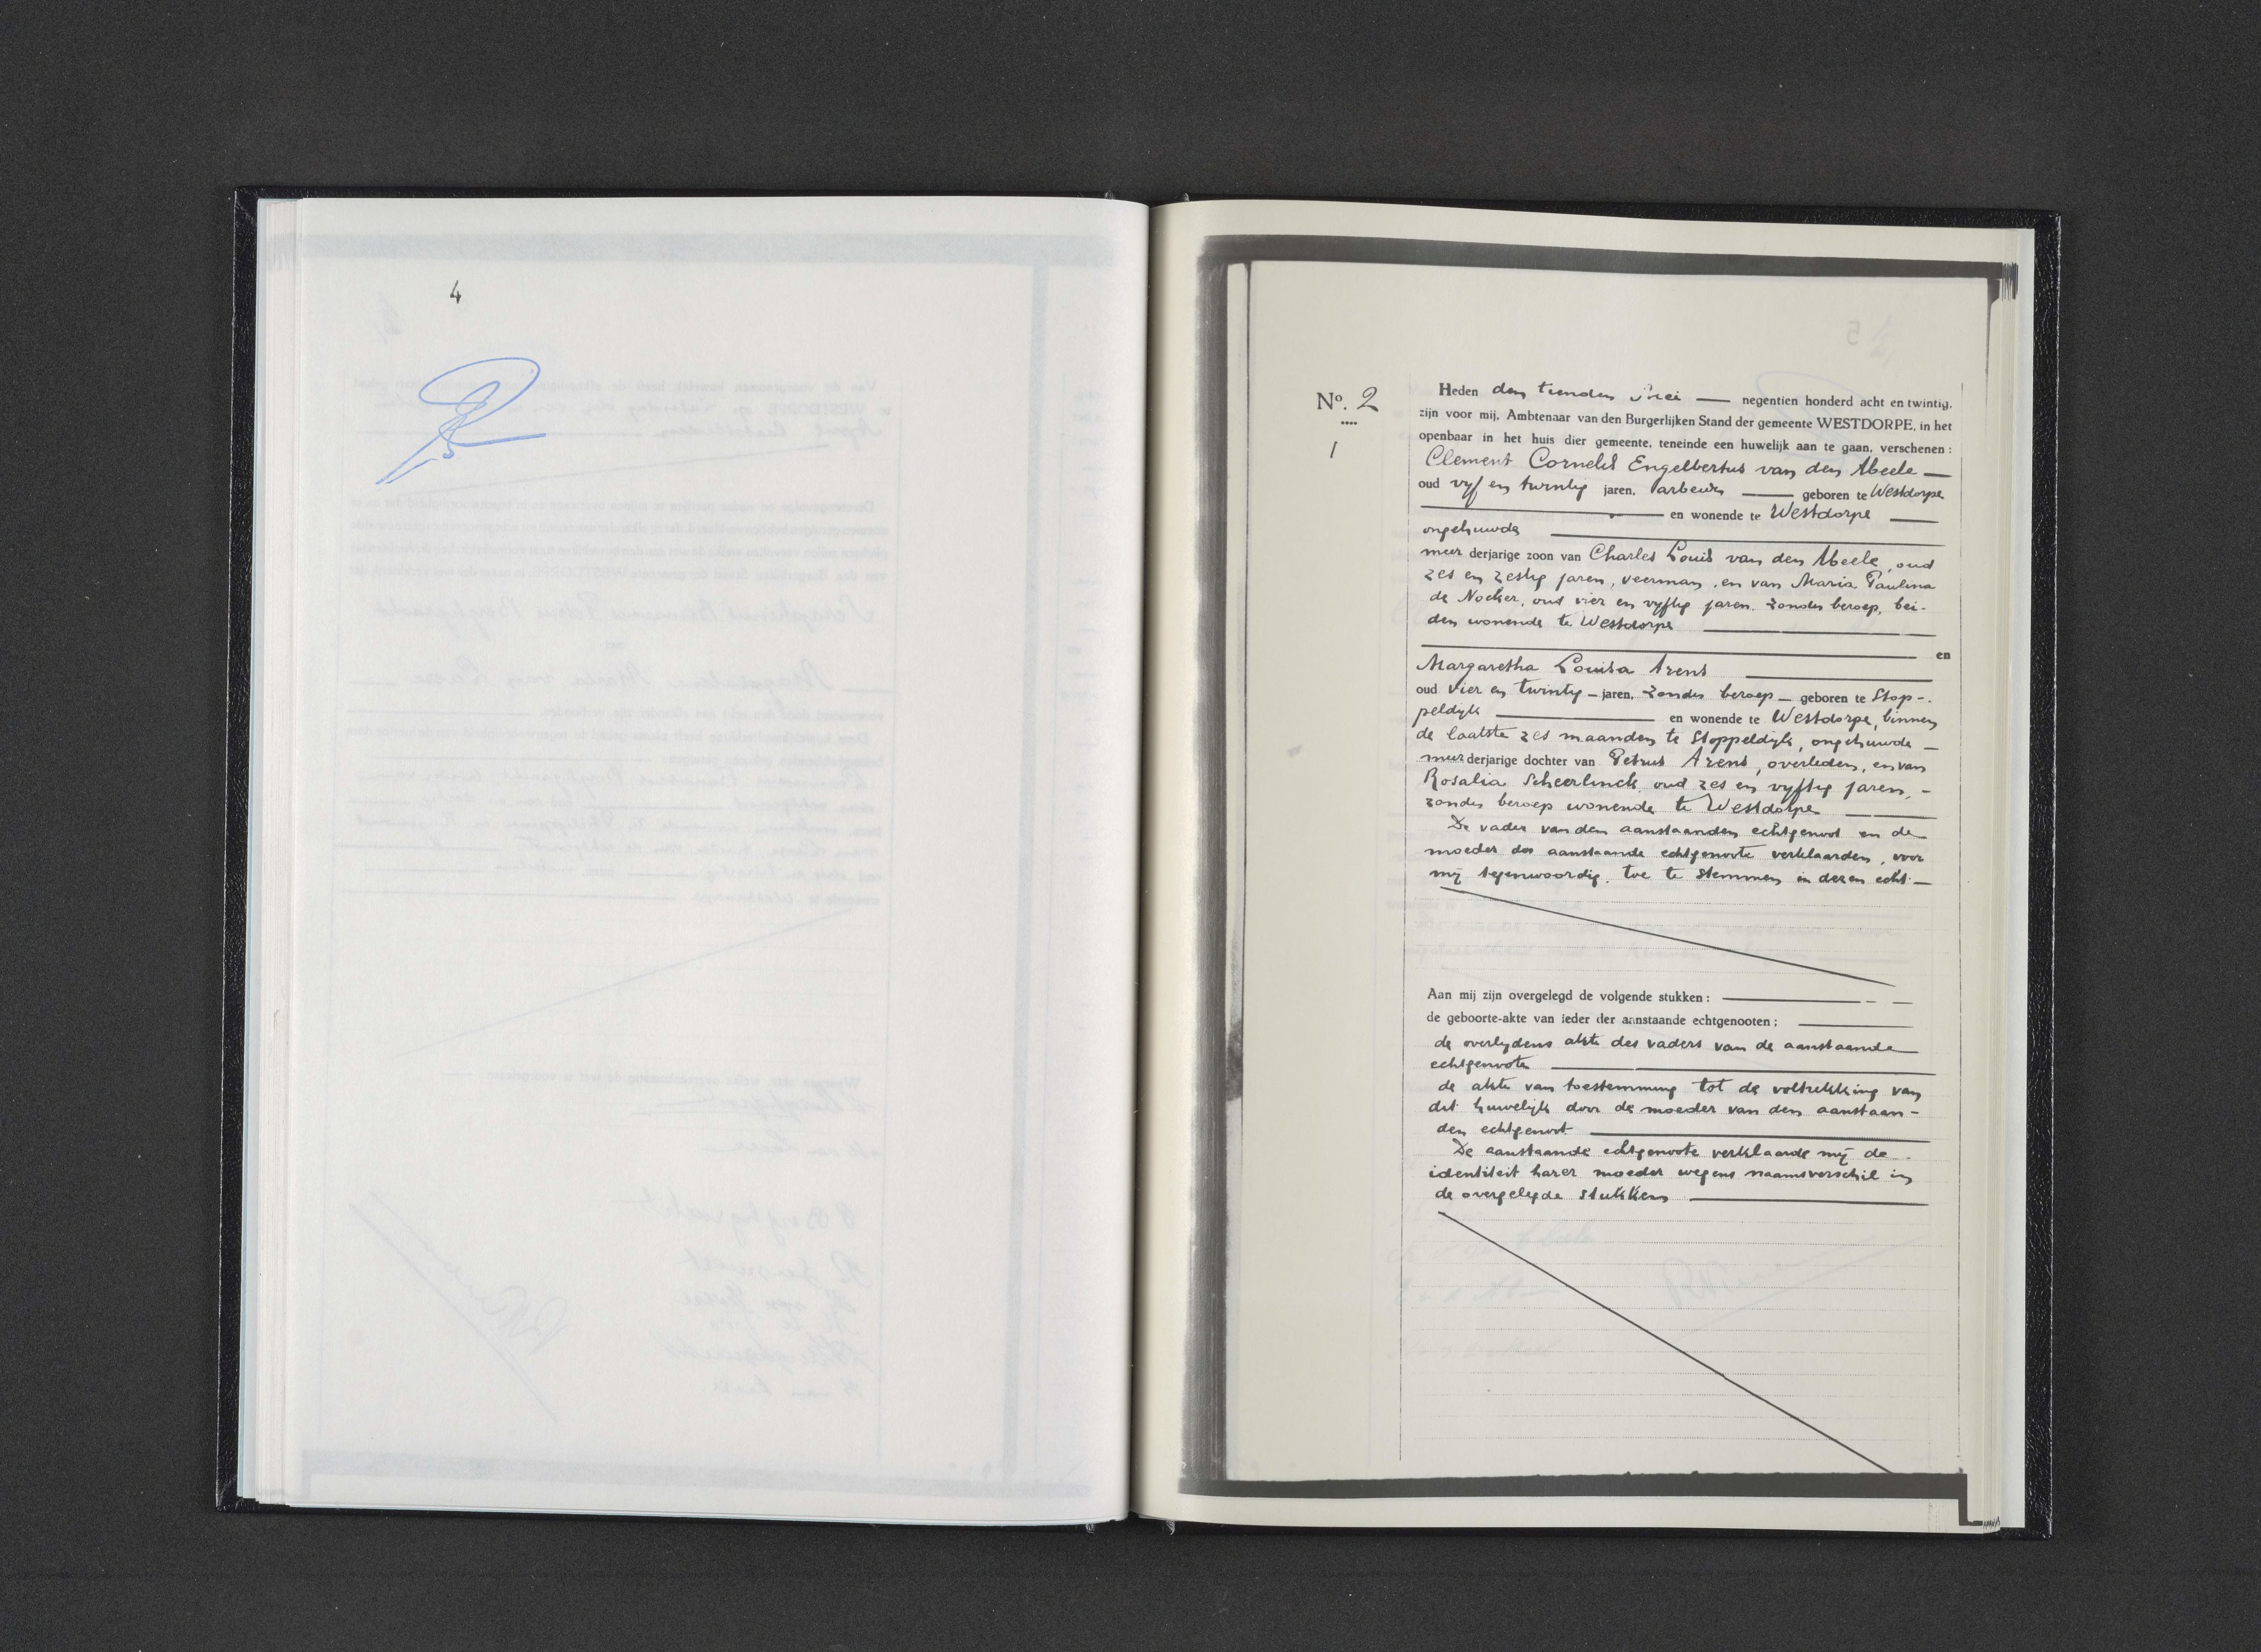 4
Nº. 2
1
Heden den tienden Mei — negentien honderd acht en twintig,
zijn voor mij, Ambtenaar van den Burgerlijken Stand der gemeente WESTDORPE, in het
openbaar in het huis dier gemeente, teneinde een huwelijk aan te gaan, verschenen:
Clement Cornelis Engelbertus van den Abeele —
oud vijf en twintig jaren, arbeider — geboren te Westdorpe
— en wonende te Westdorpe —
ongehuwde —
meerderjarige zoon van Charles Louis van den Abeele, oud
zes en zestig jaren, veerman, en van Maria Paulina
de Nocker, oud vier en vijftig jaren, zonder beroep, bei-
den wonende te Westdorpe —
— en
Margaretha Louisa Arens —
oud vier en twintig — jaren, zonder beroep — geboren te Stop-
peldijk — en wonende te Westdorpe, binnen
de laatste zes maanden te Stoppeldijk, ongehuwde —
meerderjarige dochter van Petrus Arens, overleden, en van
Rosalia Scheerlinck, oud zes en vijftig jaren, -
zonder beroep wonende te Westdorpe —
De vader van den aanstaanden echtgenoot en de
moeder der aanstaande echtgenoote verklaarden, voor
mij tegenwoordig, toe te stemmen in dezen echt. —
Aan mij zijn overgelegd de volgende stukken: —
de geboorte-akte van ieder der aanstaande echtgenooten; —
de overlijdens akte des vaders van de aanstaande
echtgenoote —
de akte van toestemming tot de voltrekking van
dit huwelijk door de moeder van den aanstaan-
den echtgenoot —
De aanstaande echtgenoote verklaarde mij de
identiteit harer moeder wegens naamsverschil in
de overgelegde stukken —